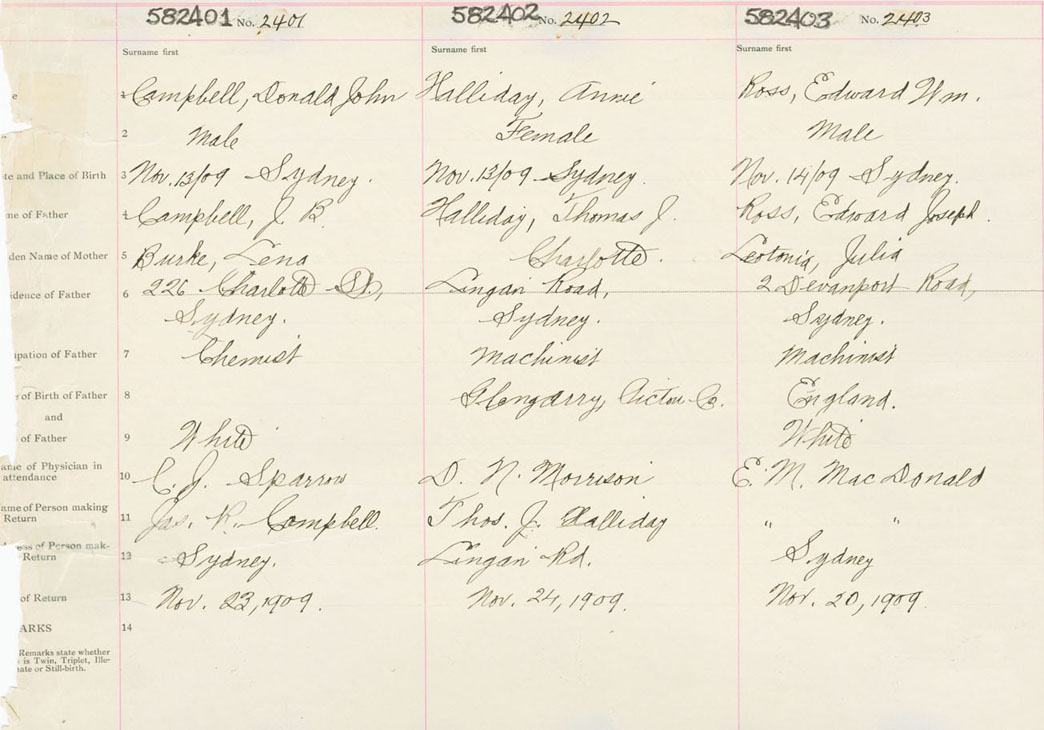 582401 No. 2401 582402 No. 2402 582403 No. 2403
Surname first Surname first Surname first
e 1 Campbell, Donald John Halliday, Annie Ross, Edward Wm.
2 Male Female Male
te and Place of Birth 3 Nov. 13/09 Sydney. Nov. 13/09 Sydney. Nov. 14/09 Sydney.
me of Father 4 Campbell, J. R. Halliday, Thomas J. Ross, Edward Joseph.
den Name of Mother 5 Burke, Lena Charlotte. Julia
idence of Father 6 226 Charlotte St., Lingan Road, 2 Devanport Road,
Sydney. Sydney. Sydney.
upation of Father 7 Chemist Machinist Machinist
s of Birth of Father 8 Glengarry, Pictou Co. England.
and
of Father 9 White White
ame of Physician in
attendance 10 C. J. Sparrow D. N. Morrison E. M. MacDonald
ame of Person making
Return 11 Jas. R. Campbell. Thos. J. Halliday " "
ess of Person mak-
Return 12 Sydney. Lingan Rd. Sydney
of Return 13 Nov. 23, 1909. Nov. 24, 1909. Nov. 20, 1909.
ARKS 14
Remarks state whether
is Twin, Triplet, Ille-
ate or Still-birth.